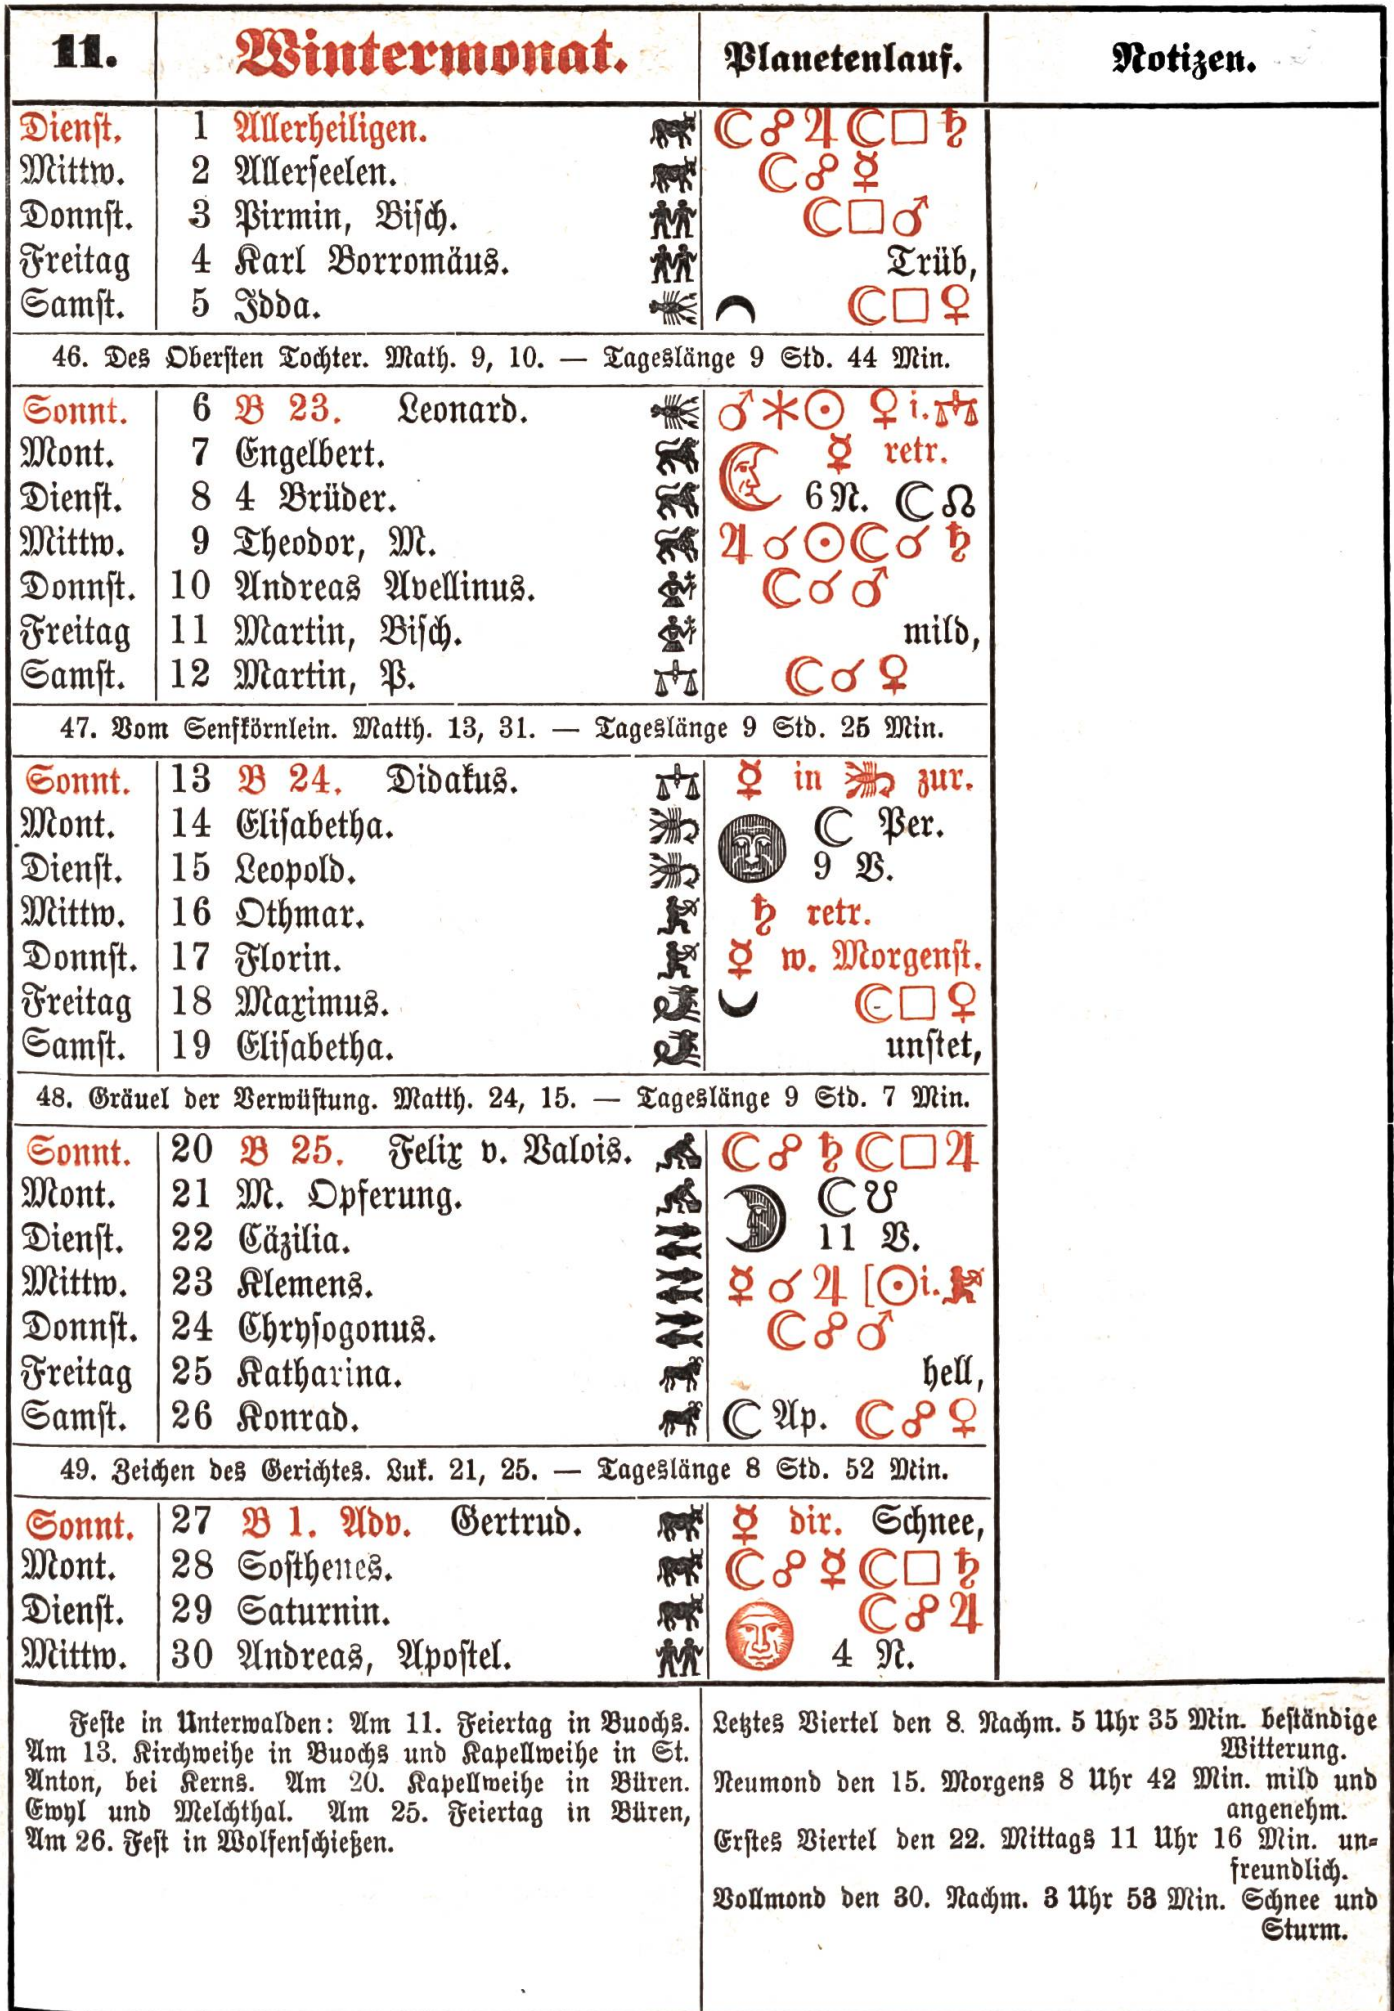 11. Wintermonat. Planetenlauf. Notizen.
Dienst. 1 Allerheiligen. ☾☍♃☾□♄
Mittw. 2 Allerseelen. ☾☍☿
Donnst. 3 Pirmin, Bisch. ☾□♂
Freitag 4 Karl Borromäus. Trüb,
Samst. 5 Idda. ☾□♀
46. Des Obersten Tochter. Math. 9, 10. — Tageslänge 9 Std. 44 Min.
Sonnt. 6 B 23. Leonard. ♂⚹☉ ♀ i. ♎
Mont. 7 Engelbert. ☿ retr.
Dienst. 8 4 Brüder. 6 N. ☾☊
Mittw. 9 Theodor, M. ♃☌☉☾☌♄
Donnst. 10 Andreas Avellinus. ☾☌♂
Freitag 11 Martin, Bisch. mild,
Samst. 12 Martin, P. ☾☌♀
47. Vom Senfkörnlein. Matth. 13, 31. — Tageslänge 9 Std. 25 Min.
Sonnt. 13 B 24. Didakus. ☿ in ♏ zur.
Mont. 14 Elisabetha. ☾ Per.
Dienst. 15 Leopold. 9 V.
Mittw. 16 Othmar. ♄ retr.
Donnst. 17 Florin. ☿ w. Morgenst.
Freitag 18 Maximus. ☾□♀
Samst. 19 Elisabetha. unstet,
48. Gräuel der Verwüstung. Matth. 24, 15. — Tageslänge 9 Std. 7 Min.
Sonnt. 20 B 25. Felix v. Valois. ☾☍♄☾□♃
Mont. 21 M. Opferung. ☾☋
Dienst. 22 Cäzilia. 11 V.
Mittw. 23 Klemens. ☿☌♃ [☉i.♐
Donnst. 24 Chrysogonus. ☾☍♂
Freitag 25 Katharina. hell,
Samst. 26 Konrad. ☾ Ap. ☾☍♀
49. Zeichen des Gerichtes. Luk. 21, 25. — Tageslänge 8 Std. 52 Min.
Sonnt. 27 B 1. Adv. Gertrud. ☿ dir. Schnee,
Mont. 28 Sosthenes. ☾☍☿☾□♄
Dienst. 29 Saturnin. ☾☍♃
Mittw. 30 Andreas, Apostel. 4 N.
Feste in Unterwalden: Am 11. Feiertag in Buochs.
Am 13. Kirchweihe in Buochs und Kapellweihe in St.
Anton, bei Kerns. Am 20. Kapellweihe in Büren.
Ewyl und Melchthal. Am 25. Feiertag in Büren,
Am 26. Fest in Wolfenschießen.
Letztes Viertel den 8. Nachm. 5 Uhr 35 Min. beständige
Witterung.
Neumond den 15. Morgens 8 Uhr 42 Min. mild und
angenehm.
Erstes Viertel den 22. Mittags 11 Uhr 16 Min. un-
freundlich.
Vollmond den 30. Nachm. 3 Uhr 53 Min. Schnee und
Sturm.